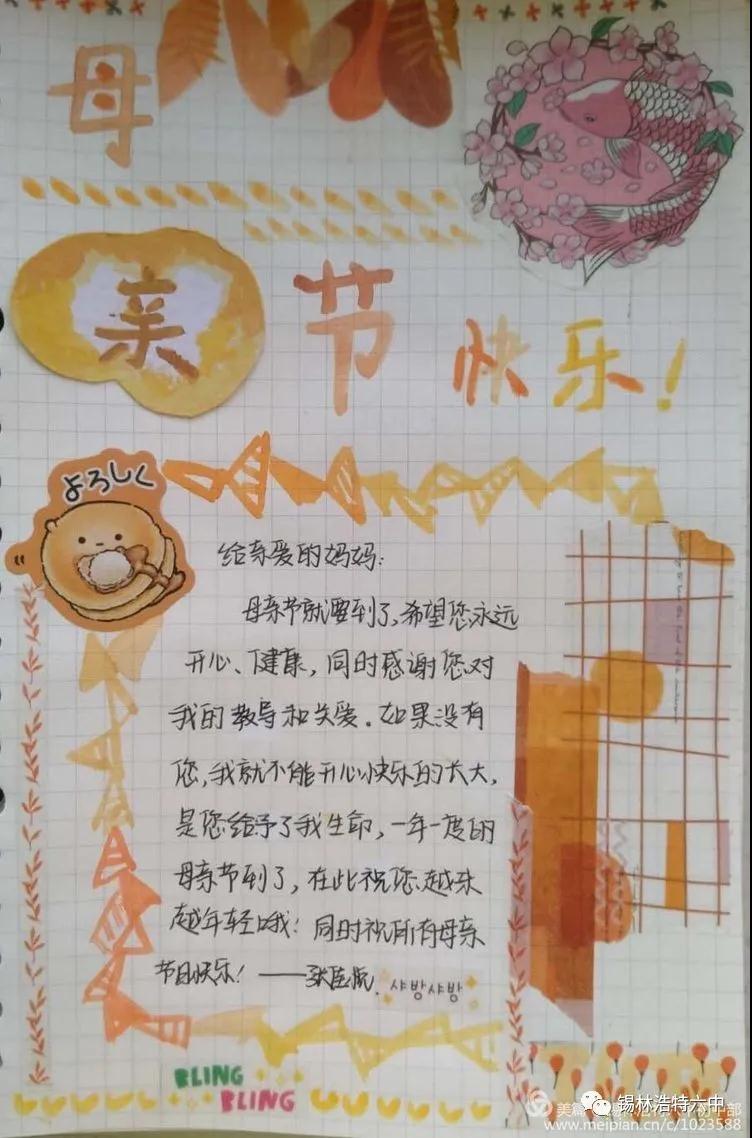 母
亲 节 快乐!
よろしく
给亲爱的妈妈:
母亲节就要到了,希望您永远
开心、健康,同时感谢您对
我的教导和关爱。如果没有
您,我就不能开心快乐的长大,
是您给予了我生命,一年一度的
母亲节到了,在此祝您越来
越年轻哦!同时祝所有母亲
节日快乐!——张
샤방샤방
BLING
BLING
美篇
锡林浩特六中
www.meipian.cn/c/1023588